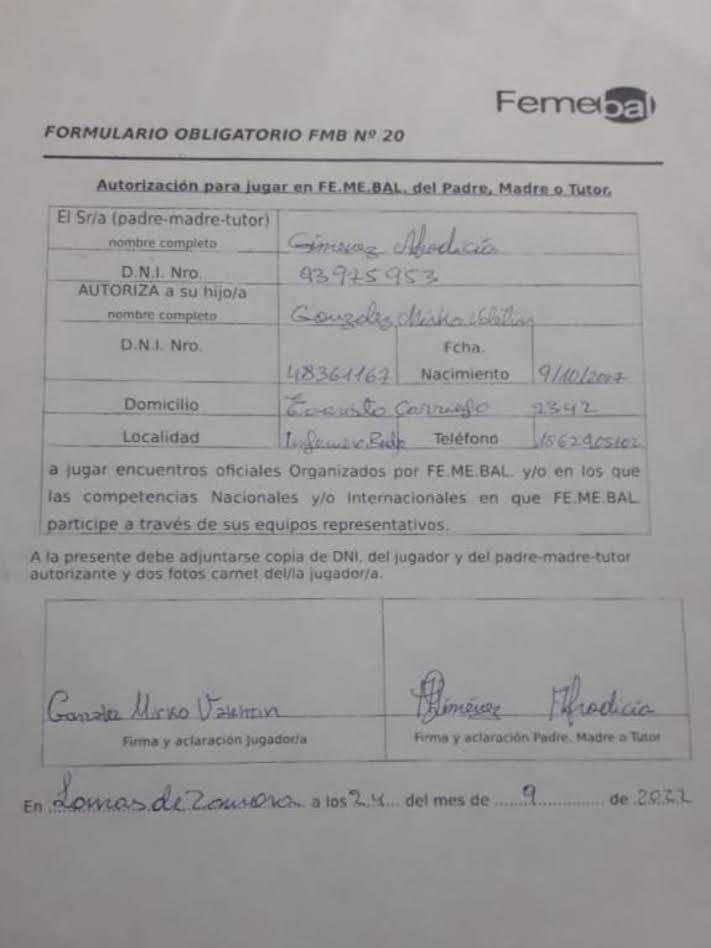 Femebal
FORMULARIO OBLIGATORIO FMB Nº 20
Autorización para jugar en FE.ME.BAL. del Padre, Madre o Tutor.
El Sr/a (padre-madre-tutor)
nombre completo Gimenez Afrodicia
D.N.I. Nro. 93975953
AUTORIZA a su hijo/a
nombre completo Gonzalez Mirko Valentin
D.N.I. Nro. 48361167 Fcha. Nacimiento 9/10/2007
Domicilio Evaristo Carriego 2342
Localidad Teléfono 1562905102
a jugar encuentros oficiales Organizados por FE.ME.BAL. y/o en los que
las competencias Nacionales y/o Internacionales en que FE.ME.BAL.
participe a través de sus equipos representativos.
A la presente debe adjuntarse copia de DNI, del jugador y del padre-madre-tutor
autorizante y dos fotos carnet del/la jugador/a.
Gonzalez Mirko Valentin Giménez Afrodicia
Firma y aclaración Jugador/a Firma y aclaración Padre, Madre o Tutor
En Lomas de Zamora a los 24 del mes de 9 de 2022